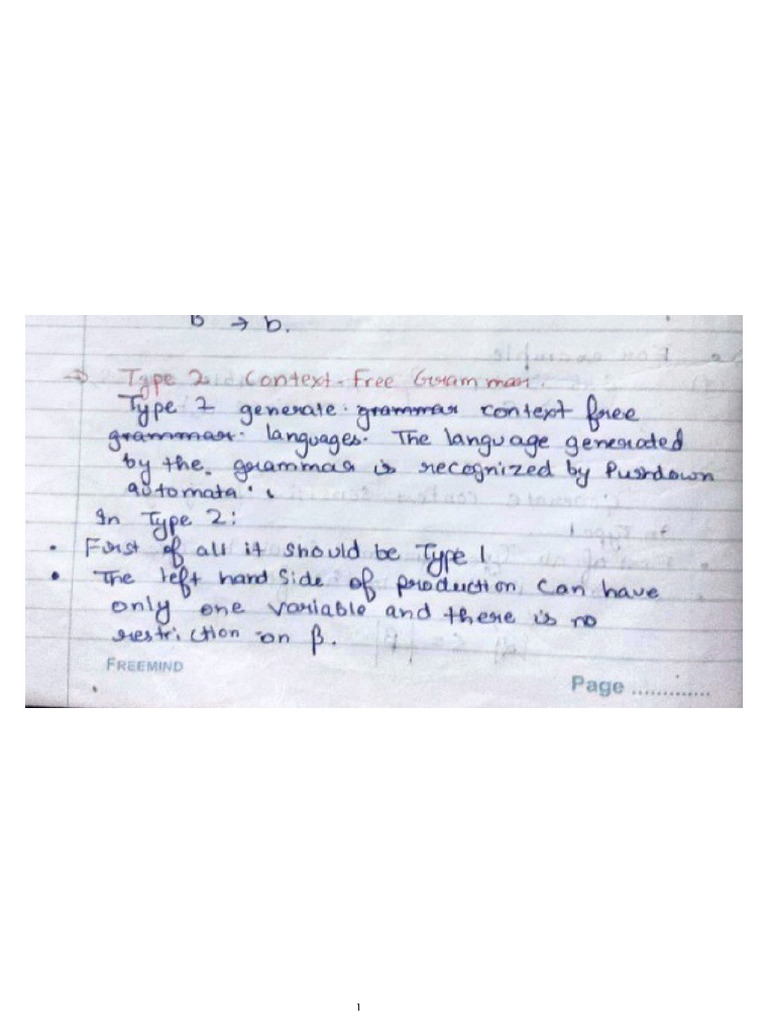 b → b.
⇒ Type 2 Context-Free Grammar.
Type 2 generate grammar context free
grammar languages. The language generated
by the grammar is recognized by Pushdown
automata.
In Type 2:
• First of all it should be Type 1
• The left hand side of production can have
only one variable and there is no
restriction on β.
FREEMIND
Page .............
1